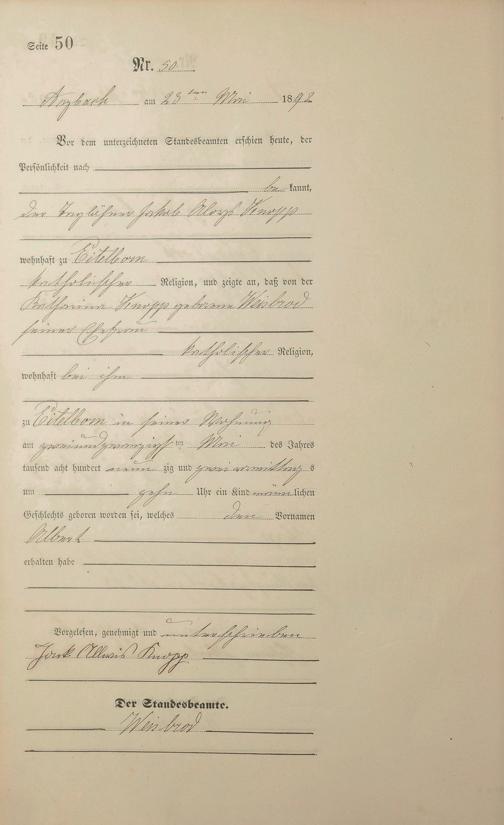 Seite 50
Nr. 50
Arzbach am 23ten Mai 1892
Vor dem unterzeichneten Standesbeamten erschien heute, der
Persönlichkeit nach
be kannt,
der Taglöhner Jakob Aloys Knopp
wohnhaft zu Eitelborn
katholischer Religion, und zeigte an, daß von der
Katharina Knopp geborene Weisbrod
seiner Ehefrau
katholischer Religion,
wohnhaft bei ihm
zu Eitelborn in seiner Wohnung
am zweiundzwanzigsten Mai des Jahres
tausend acht hundert neun zig und zwei vormittags
um zehn Uhr ein Kind männlichen
Geschlechts geboren worden sei, welches den Vornamen
Albert
erhalten habe
Vorgelesen, genehmigt und unterschrieben
Knopp
Der Standesbeamte.
Weisbrod